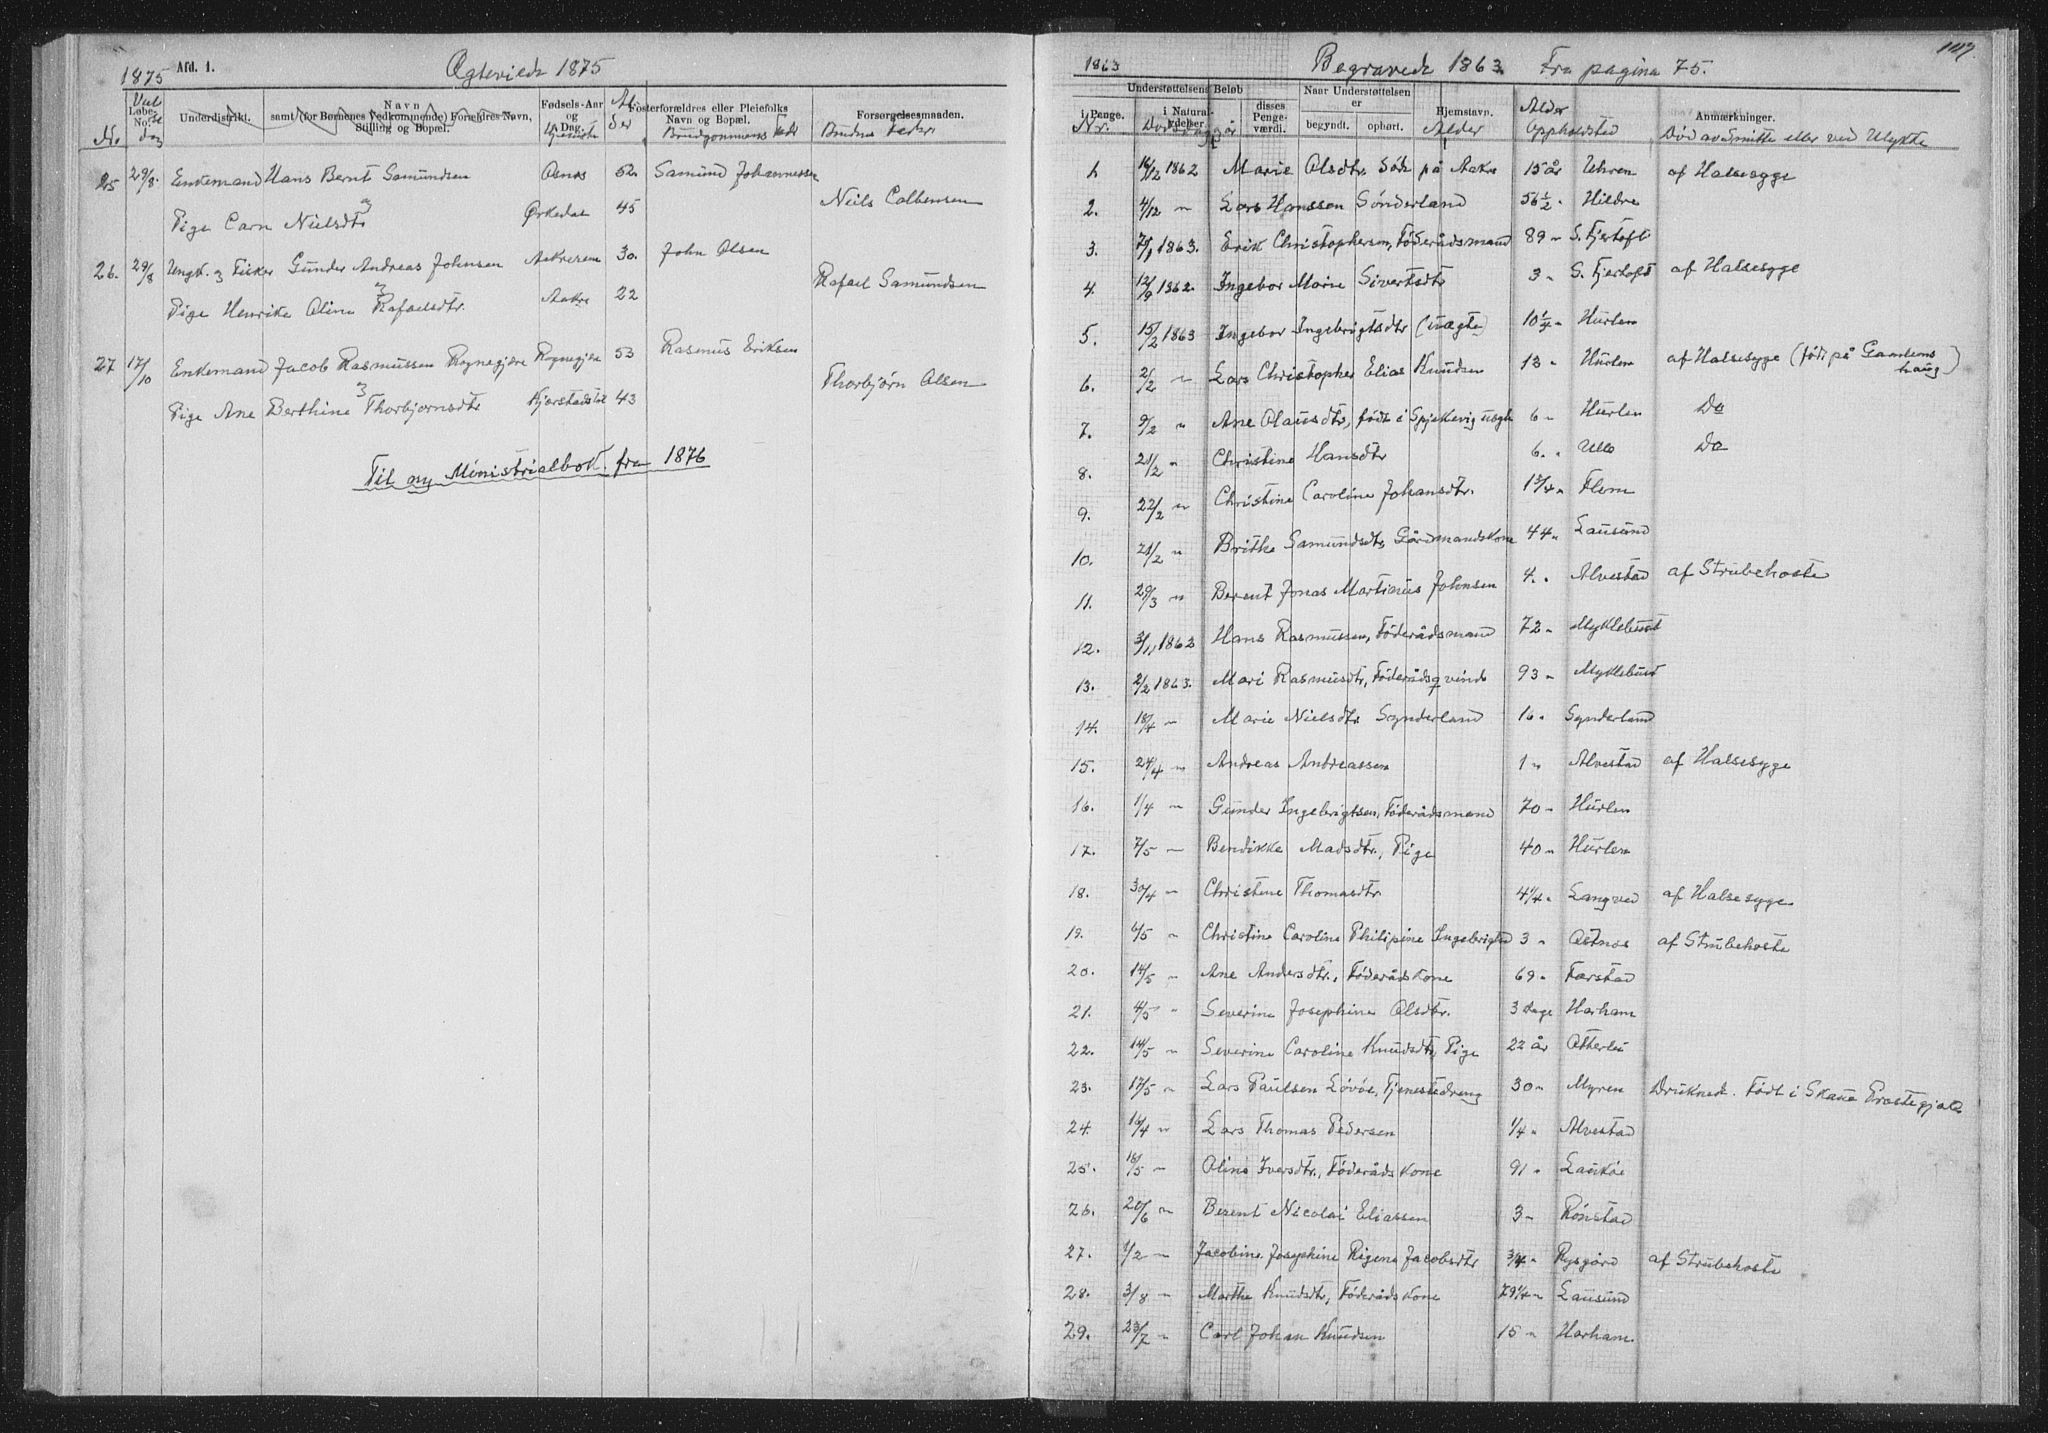 1875 Afd. 1. Ægteviede 1875
Løbe-No. Underdistrikt. Navn samt (for Børnenes Vedkommende) Forældres Navn, Stilling og Bopæl. Fødsels-Aar og Dag. Fosterforældres eller Pleiefolks Navn og Bopæl. Forsørgelsesmaaden.
No. dag Al-der Brudgommens Fader Brudens Fader
25 29/8. Enkemand Hans Bernt Samundsen Osnes 52. Samund Johannessen
og
Pige Carn Nielsdtr Ørkedal 45 Niels Colbensen
26. 29/8 Ungk. og Fisker Gunder Andreas Johnsen Aakerem 30. John Olsen
og
Pige Henrike Oline Rafaelsdtr. Aakre 22 Rafael Samundsen
27 17/10 Enkemand Jacob Rasmussen Rognegjære Rognegjære 53 Rasmus Eriksen
og
Pige Ane Berthine Thorbjørnsdtr Kjerstadstøl 43 Thorbjørn Olsen
Til ny Ministrialbok fra 1876
147.
1863 Begravede 1863. Fra pagina 75.
Understøttelsens Beløb Naar Understøttelsen er Hjemstavn. Anmærkninger.
i Penge. i Natural-ydelser. disses Penge-værdi. begyndt. ophørt.
Nr. Dødsdag Alder Alder Oppholdsted Død av Smitte eller ved Ulykke
1. 16/12 1862 Marie Olsdtr. Død på Aakre 15 år Uhren af Halsesyge
2. 4/12 " Lars Hanssen Sønderland 56 1/2 " Hildre
3. 7/1 1863. Erik Christophersen, Føderådsmand 89 " S. Fjertoft
4. 12/9 1862. Ingebor Marie Sivertsdtr 3 " S. Fjertoft af Halsesyge
5. 15/2 1863 Ingebor Ingebrigtsdtr (uægte) 10 1/4 " Hurlen
6. 2/2 " Lars Christopher Elias Knudsen 13 " Hurlen af Halsesyge (født på Gamlemshaug)
7. 9/2 " Ane Olausdtr, født i Spjelkevig uægte 6 " Hurlen Do
8. 21/2 " Christine Hansdtr 6. " Ulla Do
9. 22/2 " Christine Caroline Johansdtr. 1 3/4 " Flem
10. 21/2 " Brithe Samundsdtr, Gårdmandskone 44 " Lausund
11. 29/3 " Berent Jonas Martinus Johnsen 4. " Alvestad af Strubehoste
12. 3/11 1863 Hans Rasmussen, Føderådsmand 72 " Myklebust
13. 2/2 1863. Mari Rasmusdtr, Føderådsqvinde 93 " Myklebust
14. 18/4 " Marie Nielsdtr Synderland 16 " Synderland
15. 24/4 " Andreas Andreassen 1 " Alvestad af Halsesyge
16. 1/4 " Gunder Ingebrigtsen, Føderådsmand 70 " Hurlen
17. 7/5 " Bendikke Madsdtr., Pige 40 " Hurlen
18. 30/4 " Christene Thomasdtr 4 1/4 " Langved af Halsesyge
19. 6/5 " Christine Caroline Philipine Ingebrigtsd 3 " Østnes af Strubehoste
20. 14/5 " Ane Andersdtr., Føderådskone 69 " Farstad
21. 4/5 " Severine Josephine Olsdtr. 3 Dage Harham
22. 14/5 " Severine Caroline Knudsdtr, Pige 22 år Otterlei
23. 17/5 " Lars Paulsen Løvøe, Tjenestedreng 30 " Myren Druknede. Født i Skaue
24. 16/4 " Lars Thomas Pedersen 1/4 " Alvestad
25. 16/5 " Oline Iversdtr., Føderådskone 91 " Laukøe
26. 20/6 " Berent Nicolai Eliassen 3 " Rønstad
27. 1/2 " Jacobine Josephine Rigene Jacobsdtr 3/4 " Rysgård af Strubehoste
28. 3/8 " Marthe Knudsdtr, Føderådskone 79 1/4 " Lausund
29. 23/7 " Carl Johan Knudsen 15 " Harham.